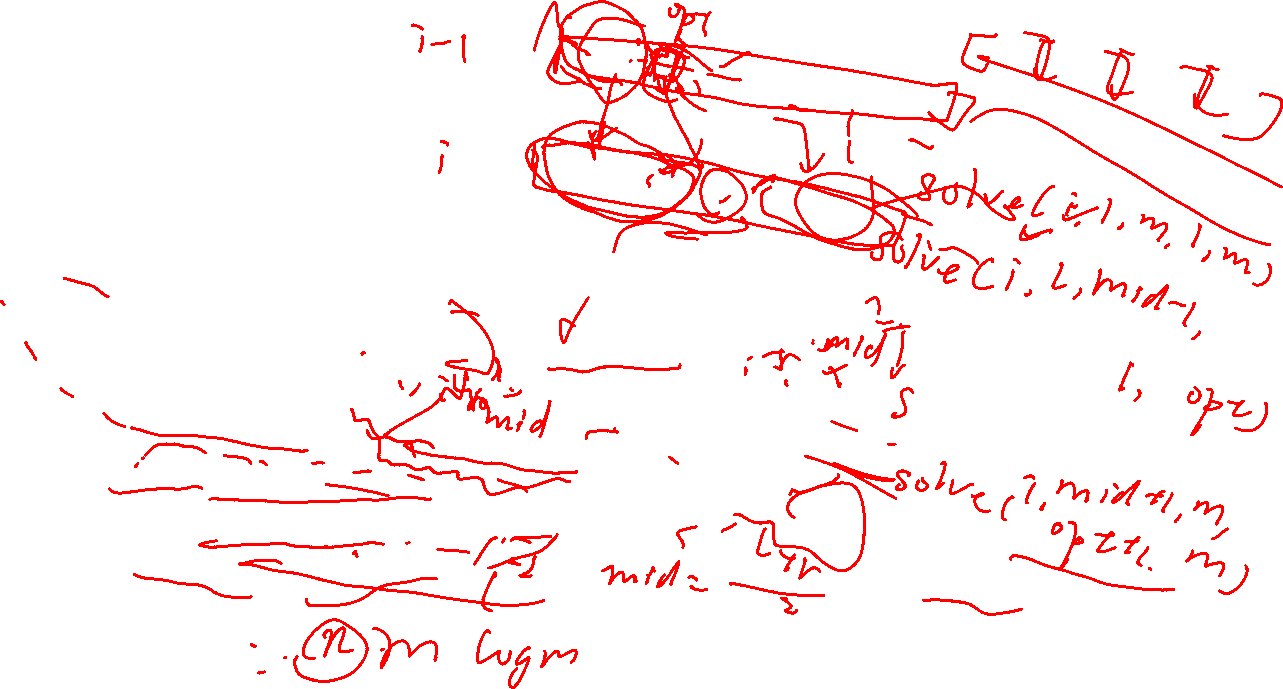 opt
i-1
i
solve(i, 1, m, 1, m)
solve(i, l, mid-1,
1, opt)
mid
mid
solve(i, mid+1, m,
opt+1, m)
mid = l+r
2
n m logm